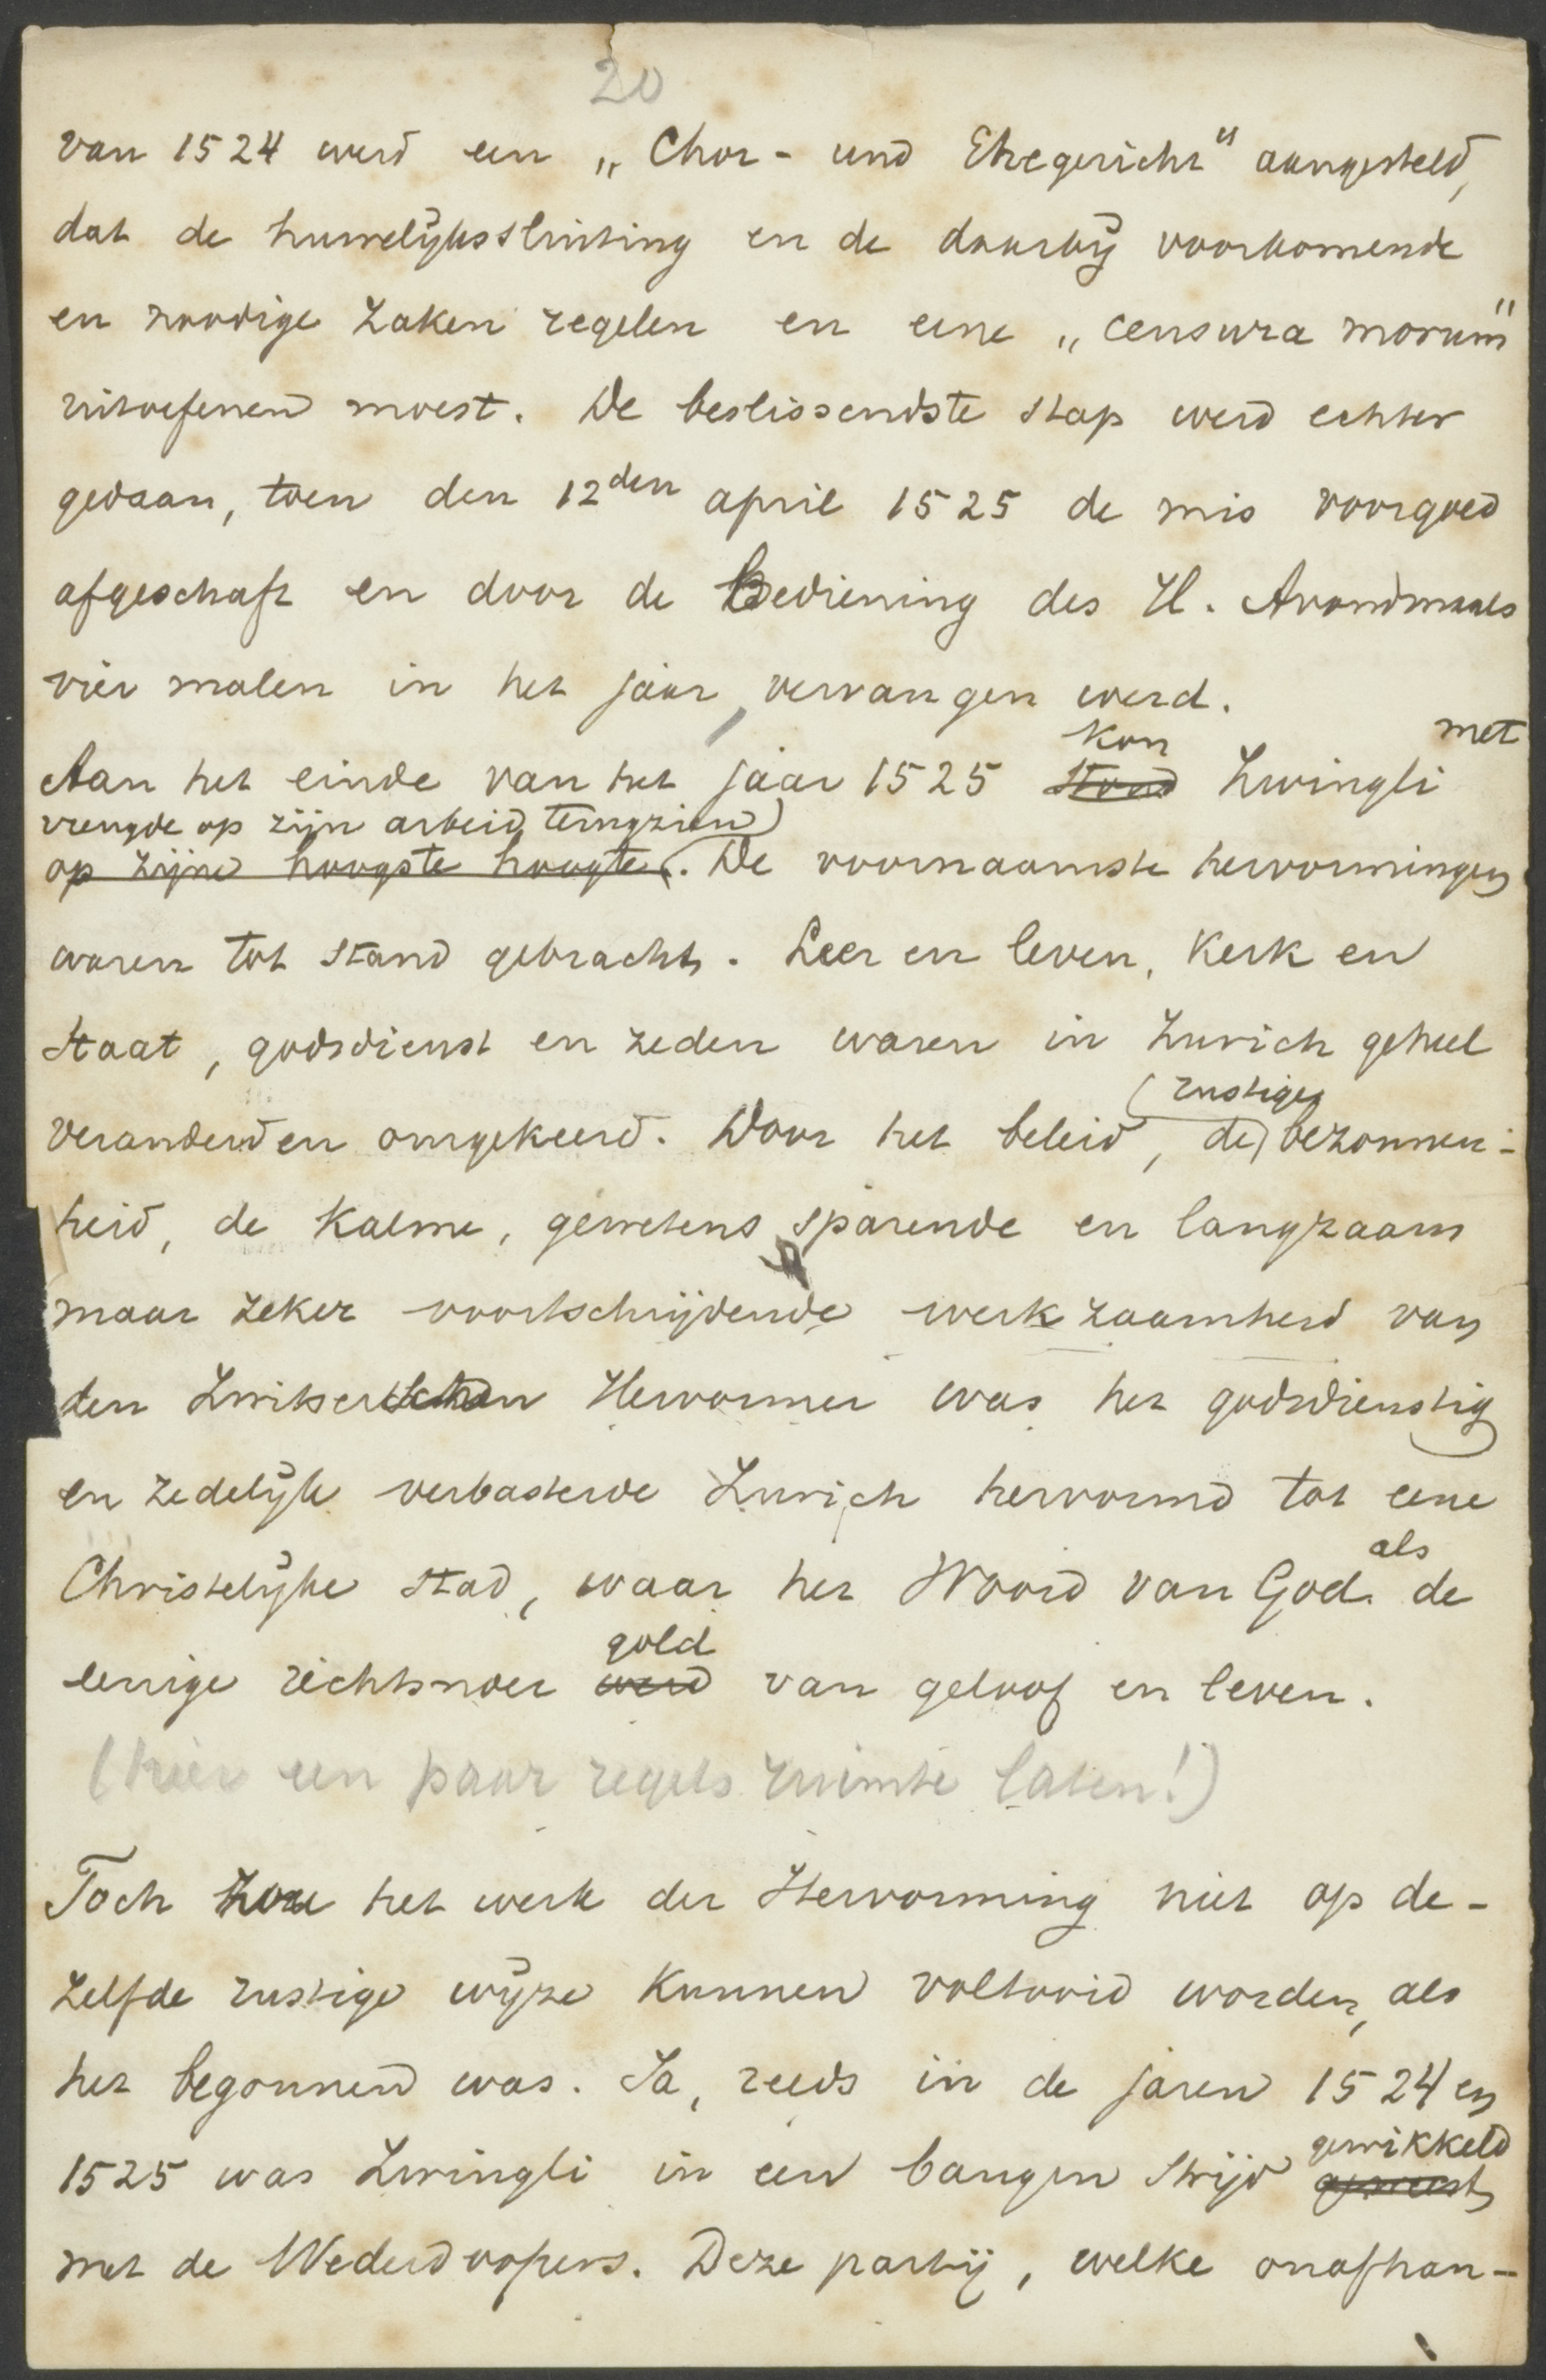 20
van 1524 werd een „Chor- und Ehegericht" aangesteld,
dat de huwelijkssluiting en de daarbij voorkomende
en noodige zaken regelen en eene „censura morum"
uitoefenen moest. De beslissendste stap werd echter
gedaan, toen den 12den april 1525 de mis voorgoed
afgeschaft en door de Bediening des H. Avondmaals
vier malen in het jaar, vervangen werd.
kon met
Aan het einde van het jaar 1525 stond Zwingli
vreugde op zijn arbeid terugzien
op zijne hoogste hoogte. De voornaamste hervormingen
waren tot stand gebracht. Leer en leven, Kerk en
Staat, godsdienst en zeden waren in Zurich geheel
rustige
veranderd en omgekeerd. Door het beleid, de bezonnen-
heid, de kalme, gewetens sparende en langzaam
maar zeker voortschrijdende werkzaamheid van
den Zwitserschen Hervormer was het godsdienstig
en zedelijk verbasterde Zurich hervormd tot eene
als
Christelijke stad, waar het Woord van God de
gold
eenige richtsnoer werd van geloof en leven.
(hier een paar regels ruimte laten!)
Toch zou het werk der Hervorming niet op de-
zelfde rustige wijze kunnen voltooid worden, als
het begonnen was. Ja, reeds in de jaren 1524 en
gewikkeld
1525 was Zwingli in een bangen strijd geweest
met de Wederdoopers. Deze partij, welke onafhan-